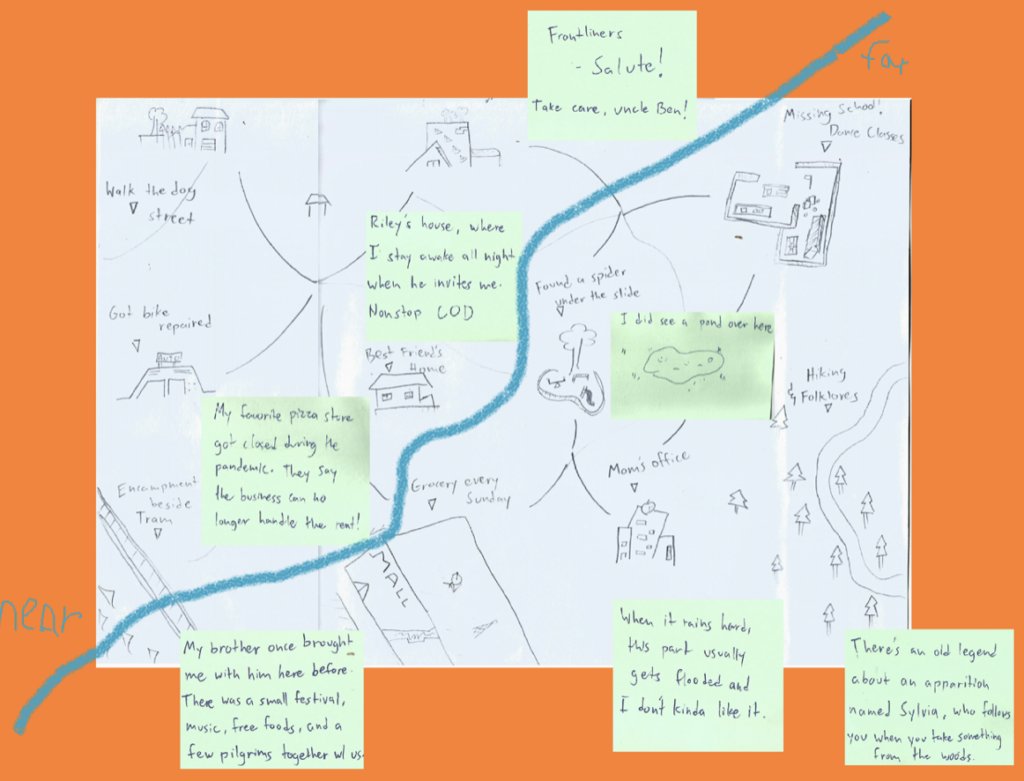 Frontliners
- Salute!
Take care, uncle Ben!
far
Missing School!
Dance Classes
Walk the dog
street
Riley's house, where
I stay awake all night
when he invites me.
Nonstop COD
Found a spider
under the slide
I did see a pond over here
Got bike
repaired
Best Friend's
Home
Hiking
& Folklores
My favorite pizza store
got closed during the
pandemic. They say
the business can no
longer handle the rent!
Encampment
beside
Tram
Grocery every
Sunday
Mom's office
MALL
near
My brother once brought
me with him here before.
There was a small festival,
music, free foods, and a
few pilgrims together w/ us.
When it rains hard,
this part usually
gets flooded and
I don't kinda like it.
There's an old legend
about an apparition
named Sylvia, who follows
you when you take something
from the woods.